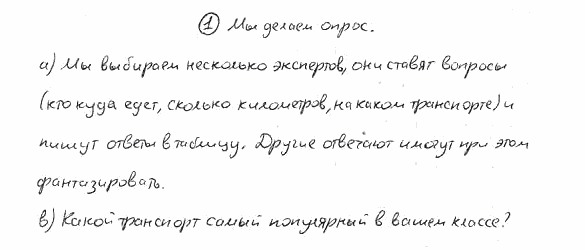 ① Мы делаем опрос.
а) Мы выбираем несколько экспертов, они ставят вопросы
(кто куда едет, сколько километров, на каком транспорте) и
пишут ответы в таблицу. Другие отвечают и могут при этом
фантазировать.
в) Какой транспорт самый популярный в вашем классе?